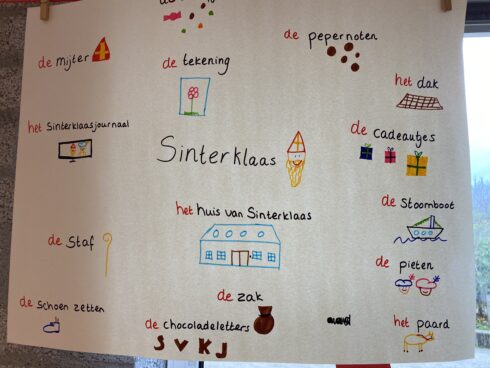 de
de pepernoten
de mijter
de tekening
het dak
het Sinterklaasjournaal
de cadeautjes
Sinterklaas
de Stoomboot
het huis van Sinterklaas
de Staf
de pieten
de zak
de schoen zetten
de chocoladeletters
het paard
S V K J